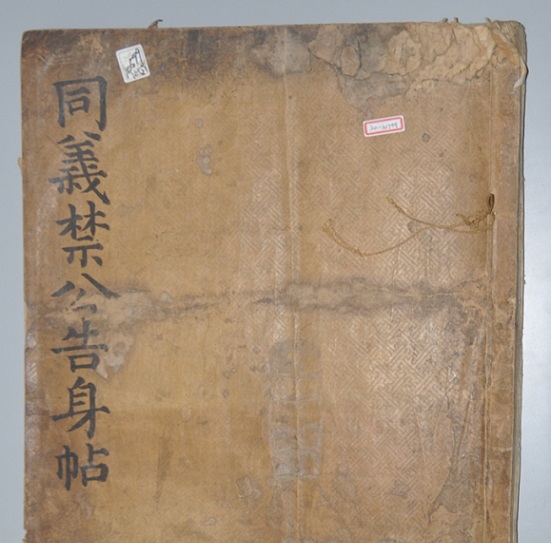 同義禁公告身帖